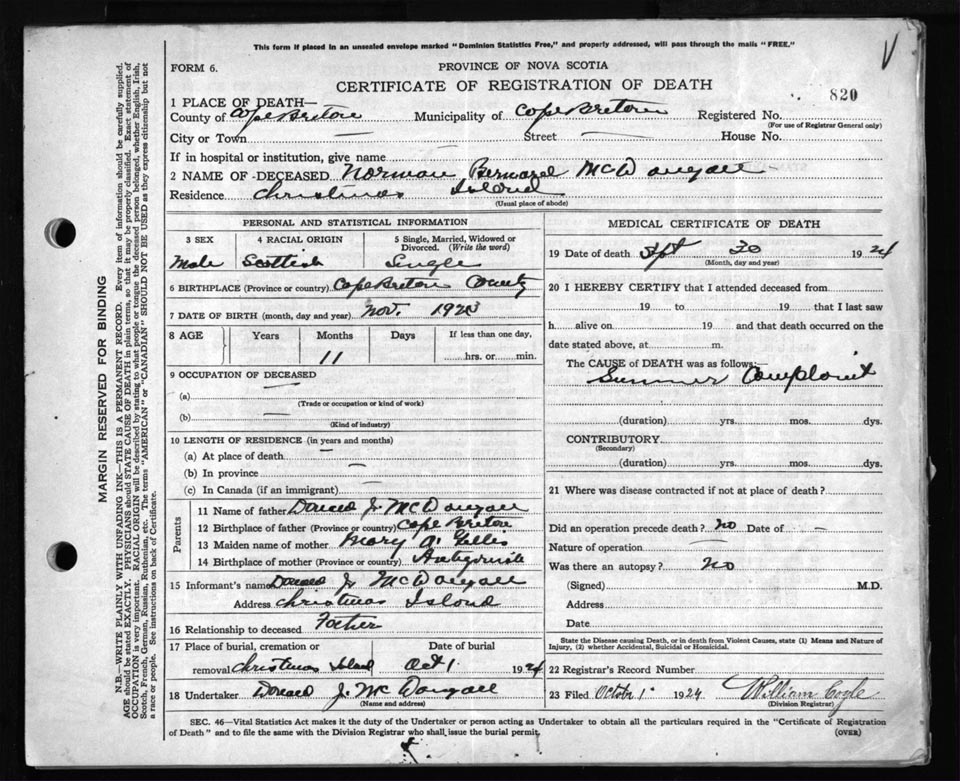 This form if placed in an unsealed envelope marked "Dominion Statistics Free," and properly addressed, will pass through the mails "FREE."
FORM 6.
PROVINCE OF NOVA SCOTIA
CERTIFICATE OF REGISTRATION OF DEATH
820
1 PLACE OF DEATH—
County of Cape Breton Municipality of Cape Breton Registered No.
(For use of Registrar General only)
City or Town — Street — House No.
If in hospital or institution, give name —
2 NAME OF DECEASED Norman Bernard McDougall
Residence Christmas Island
(Usual place of abode)
PERSONAL AND STATISTICAL INFORMATION
3 SEX 4 RACIAL ORIGIN 5 Single, Married, Widowed or Divorced. (Write the word)
Male Scottish Single
6 BIRTHPLACE (Province or country) Cape Breton County
7 DATE OF BIRTH (month, day and year) Nov. 1923
8 AGE Years Months Days If less than one day,
11 hrs. or min.
9 OCCUPATION OF DECEASED
(a) —
(Trade or occupation or kind of work)
(b) —
(Kind of industry)
10 LENGTH OF RESIDENCE (in years and months)
(a) At place of death —
(b) In province —
(c) In Canada (if an immigrant) —
Parents
11 Name of father Donald J. McDougall
12 Birthplace of father (Province or country) Cape Breton
13 Maiden name of mother Mary A. Gillis
14 Birthplace of mother (Province or Country) Antigonish
15 Informant's name Donald J. McDougall
Address Christmas Island
16 Relationship to deceased Father
17 Place of burial, cremation or Date of burial
removal Christmas Island Oct 1. 1924
18 Undertaker Donald J. McDougall
(Name and address)
MEDICAL CERTIFICATE OF DEATH
19 Date of death Sept 30 1924
(Month, day and year)
20 I HEREBY CERTIFY that I attended deceased from
19 to 19 that I last saw
h alive on 19 and that death occurred on the
date stated above, at m.
The CAUSE of DEATH was as follows:—
Summer Complaint
(duration) yrs. mos. dys.
CONTRIBUTORY
(Secondary)
(duration) yrs. mos. dys.
21 Where was disease contracted if not at place of death?
Did an operation precede death? no Date of —
Nature of operation —
Was there an autopsy? No
(Signed) M.D.
Address
Date
State the Disease causing Death, or in death from Violent Causes, state (1) Means and Nature of
Injury, (2) whether Accidental, Suicidal or Homicidal.
22 Registrar's Record Number
23 Filed October 1. 1924 William Cogle
(Division Registrar)
SEC. 46—Vital Statistics Act makes it the duty of the Undertaker or person acting as Undertaker to obtain all the particulars required in the "Certificate of Registration
of Death" and to file the same with the Division Registrar who shall issue the burial permit.
(OVER)
MARGIN RESERVED FOR BINDING
N.B.—WRITE PLAINLY WITH UNFADING INK—THIS IS A PERMANENT RECORD. Every item of information should be carefully supplied.
AGE should be stated EXACTLY. PHYSICIANS should STATE CAUSE OF DEATH in plain terms, so that it may be properly classified. Exact statement of
OCCUPATION is very important. RACIAL ORIGIN will be described by stating to what people or tongue the deceased person belonged, whether English, Irish,
Scotch, French, German, Russian, Ruthenian, etc. The terms "AMERICAN" or "CANADIAN" SHOULD NOT BE USED as they express citizenship but not
a race or people. See instructions on back of Certificate.